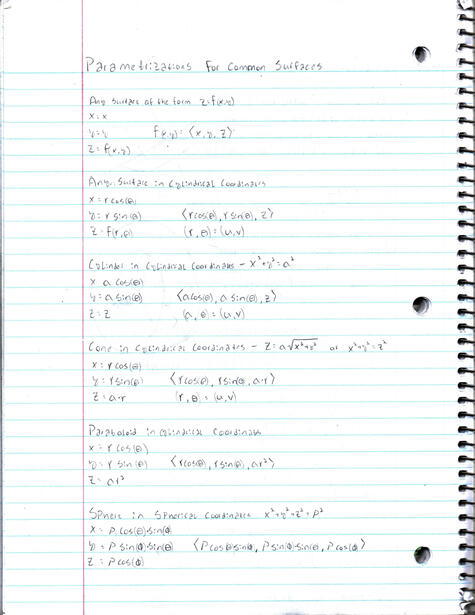 Parametrizations For Common Surfaces
Any Surface of the form z=f(x,y)
x=x
y=y f(x,y)=⟨x, y, z⟩
z=f(x,y)
Any Surface in Cylindrical Coordinates
x=rcos(θ)
y=r sin(θ) ⟨rcos(θ), rsin(θ), z⟩
z=f(r,θ) (r,θ)=(u,v)
Cylinder in Cylindrical Coordinates - x²+y²=a²
x a cos(θ)
y=a sin(θ) ⟨acos(θ), a sin(θ), z⟩
z=z (a, θ)=(u,v)
Cone in Cylindrical Coordinates - z=a√x²+y² or x²+y²=z²
x=rcos(θ)
y=rsin(θ) ⟨rcos(θ), rsin(θ), a·r⟩
z=a·r (r, θ)=(u,v)
Paraboloid in Cylindrical Coordinates
x=r cos(θ)
y=r sin(θ) ⟨rcos(θ), rsin(θ), ar²⟩
z=ar²
Sphere in Spherical Coordinates x²+y²+z²=ρ²
x=ρ cos(θ)·sin(φ)
y=ρ sin(φ)·sin(θ) ⟨ρ cosθ·sinφ, ρ sinφ·sinθ, ρ cosφ⟩
z=ρcos(φ)